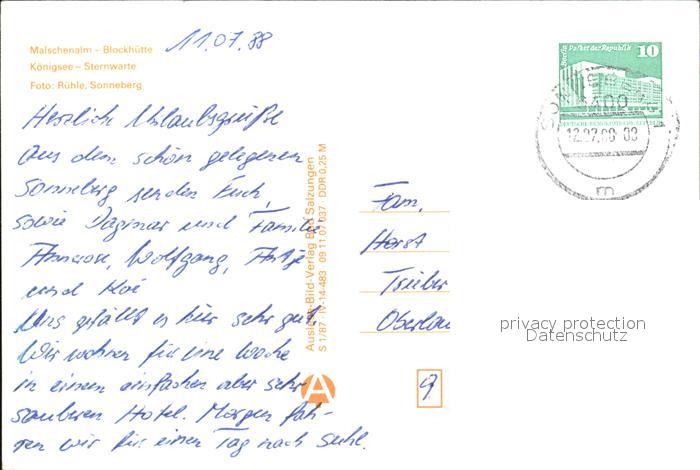 Malschenalm – Blockhütte
Königsee – Sternwarte
Foto: Rühle, Sonneberg
11.07.88
Herzliche Urlaubsgrüße
aus dem schön gelegenen
Sonneberg senden Euch,
sowie Dagmar und Familie
Annerose, Wolfgang, Antje
und Kai
Uns gefällt es hier sehr gut
Wir wohnen für eine Woche
in einem einfachen aber sehr
sauberen Hotel. Morgen fah-
ren wir für einen Tag nach Suhl.
Auslese-Bild-Verlag Bad Salzungen
S 1/87 · IV-14-483 · 09 11 07 037 · DDR 0,25 M
A
Berlin Palast der Republik 10
DEUTSCHE DEMOKRATISCHE REPUBLIK
6400
12.07.88-08
m
Fam.
Horst
9
privacy protection
Datenschutz